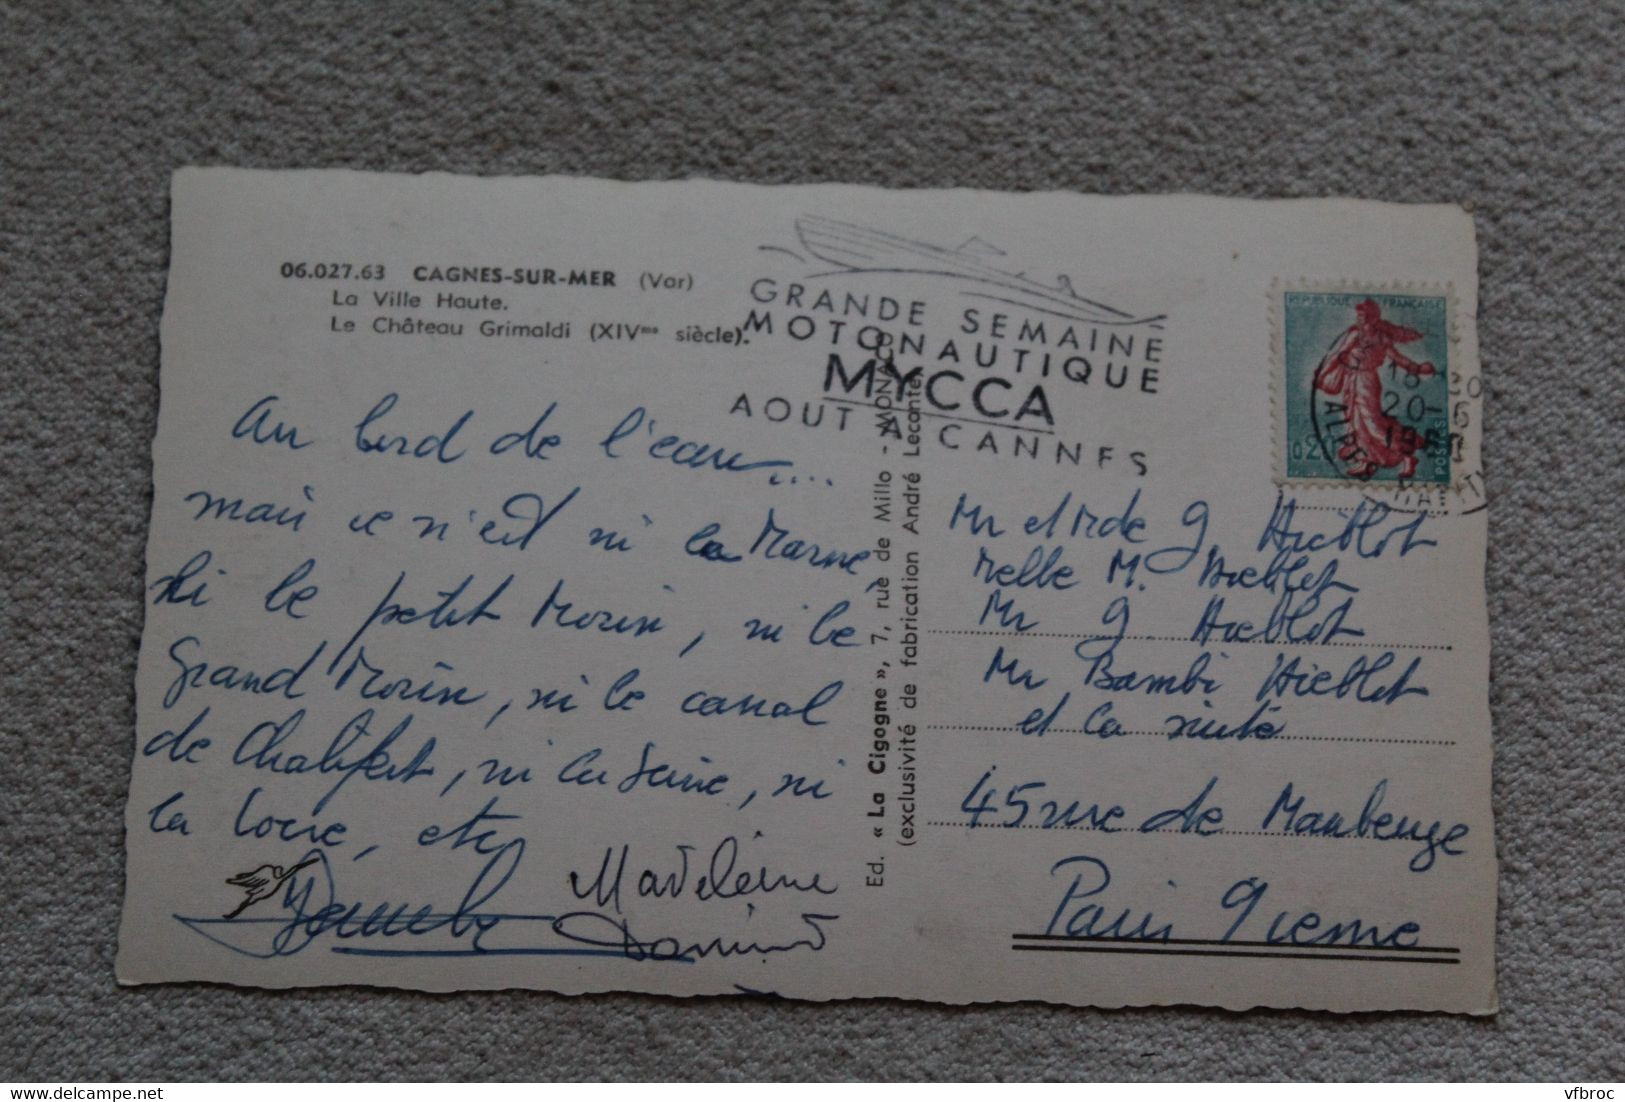 06.027.63 CAGNES-SUR-MER (Var)
La Ville Haute.
Le Château Grimaldi (XIVme siècle).
GRANDE SEMAINE
MOTONAUTIQUE
MYCCA
AOUT A CANNES
REPUBLIQUE FRANÇAISE
0,20
POSTES
18
20-6
ALPES MARIT
Au bord de l'eau....
mais ce n'est ni la Marne,
ni le petit Morin, ni le
Grand Morin, ni le canal
de Chalifert, ni la Seine, ni
la Loire, etc
Madeleine
Ed. « La Cigogne », 7, rue de Millo - MONACO
(exclusivité de fabrication André Leconte)
Mr et Mde J Hieblot
Melle M. Hieblot
Mr J. Hieblot
Mr Bambi Hieblot
et la suite
45 rue de Maubeuge
Paris 9ieme
delcampe.net
vfbroc